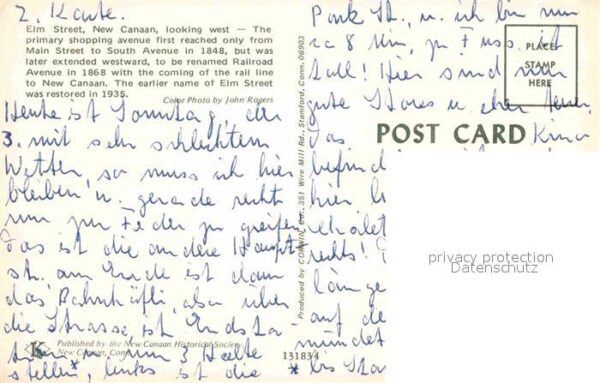 2. Karte.
Elm Street, New Canaan, looking west — The
primary shopping avenue first reached only from
Main Street to South Avenue in 1848, but was
later extended westward, to be renamed Railroad
Avenue in 1868 with the coming of the rail line
to New Canaan. The earlier name of Elm Street
was restored in 1935.
Color Photo by John Rogers
Heute ist Sonntag, der
3. mit sehr schlechtem
Wetter, so muss ich hier
bleiben u. gerade recht
um zur Feder zu greifen.
Das ist die andere Haupt
st. am Ende ist dann
das Bahnhöfli, aber über
die Strasse, ist Endsta-
tion u. nur 3 Halte
stellen*, links ist die
Published by the New Canaan Historical Society
New Canaan, Conn.
Produced by CORWIN Co., 351 Wire Mill Rd., Stamford, Conn. 06903
131834
Park St., u. ich bin nun
ca 8 Min, zu Fuss. ist
toll! Hier sind nur
gute Stores u. eher
Das
befind
hier
rechts!
länge
auf de
mündet
* bis Sta
PLACE
STAMP
HERE
POST CARD
privacy protection
Datenschutz